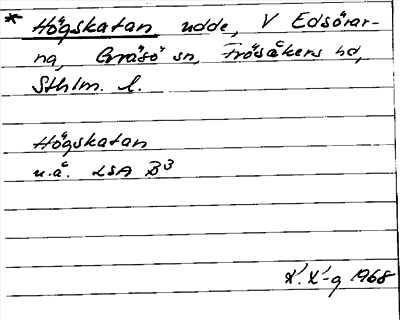 * Högskatan udde, V Edsörar-
na, Gräsö sn, Frösåkers hd,
Sthlm. l.
Högskatan
u.å. LSA B3
1968